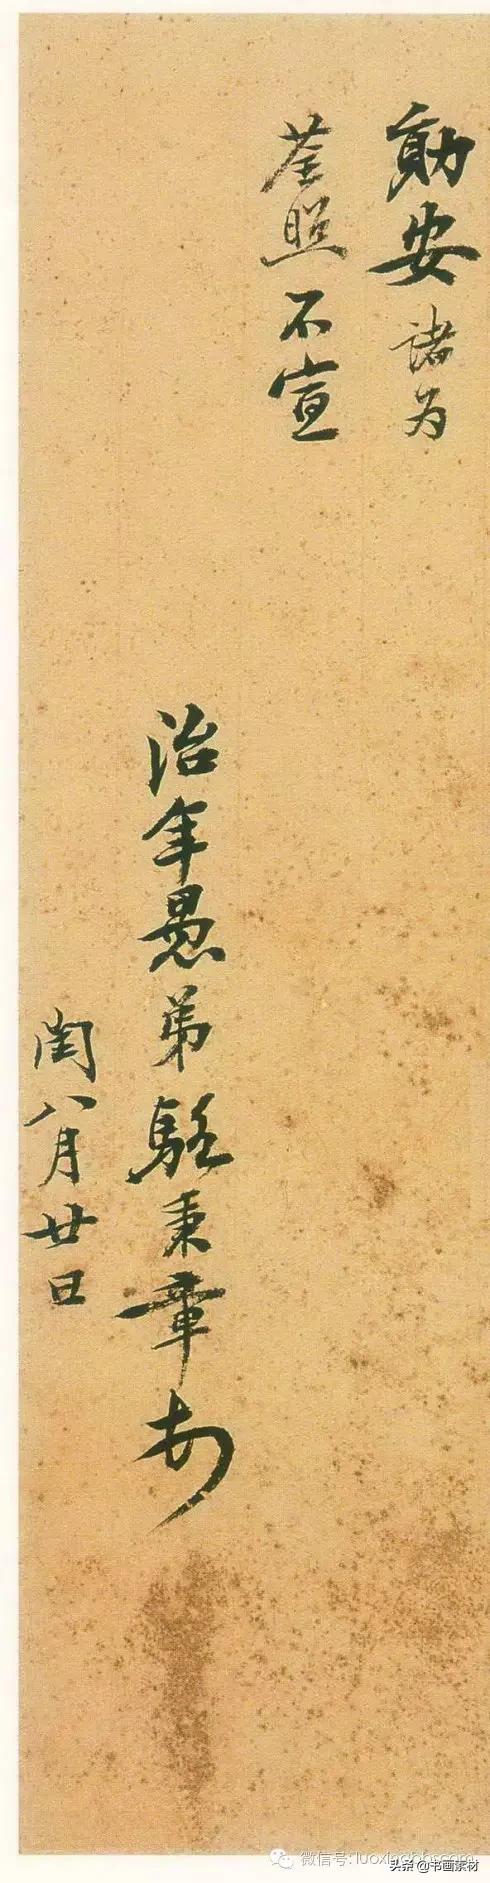 勛安諸为
荃照不宣
治年愚弟駱秉章頓
閏八月廿日
微信号: luoxiaobb.com
头条@书画素材